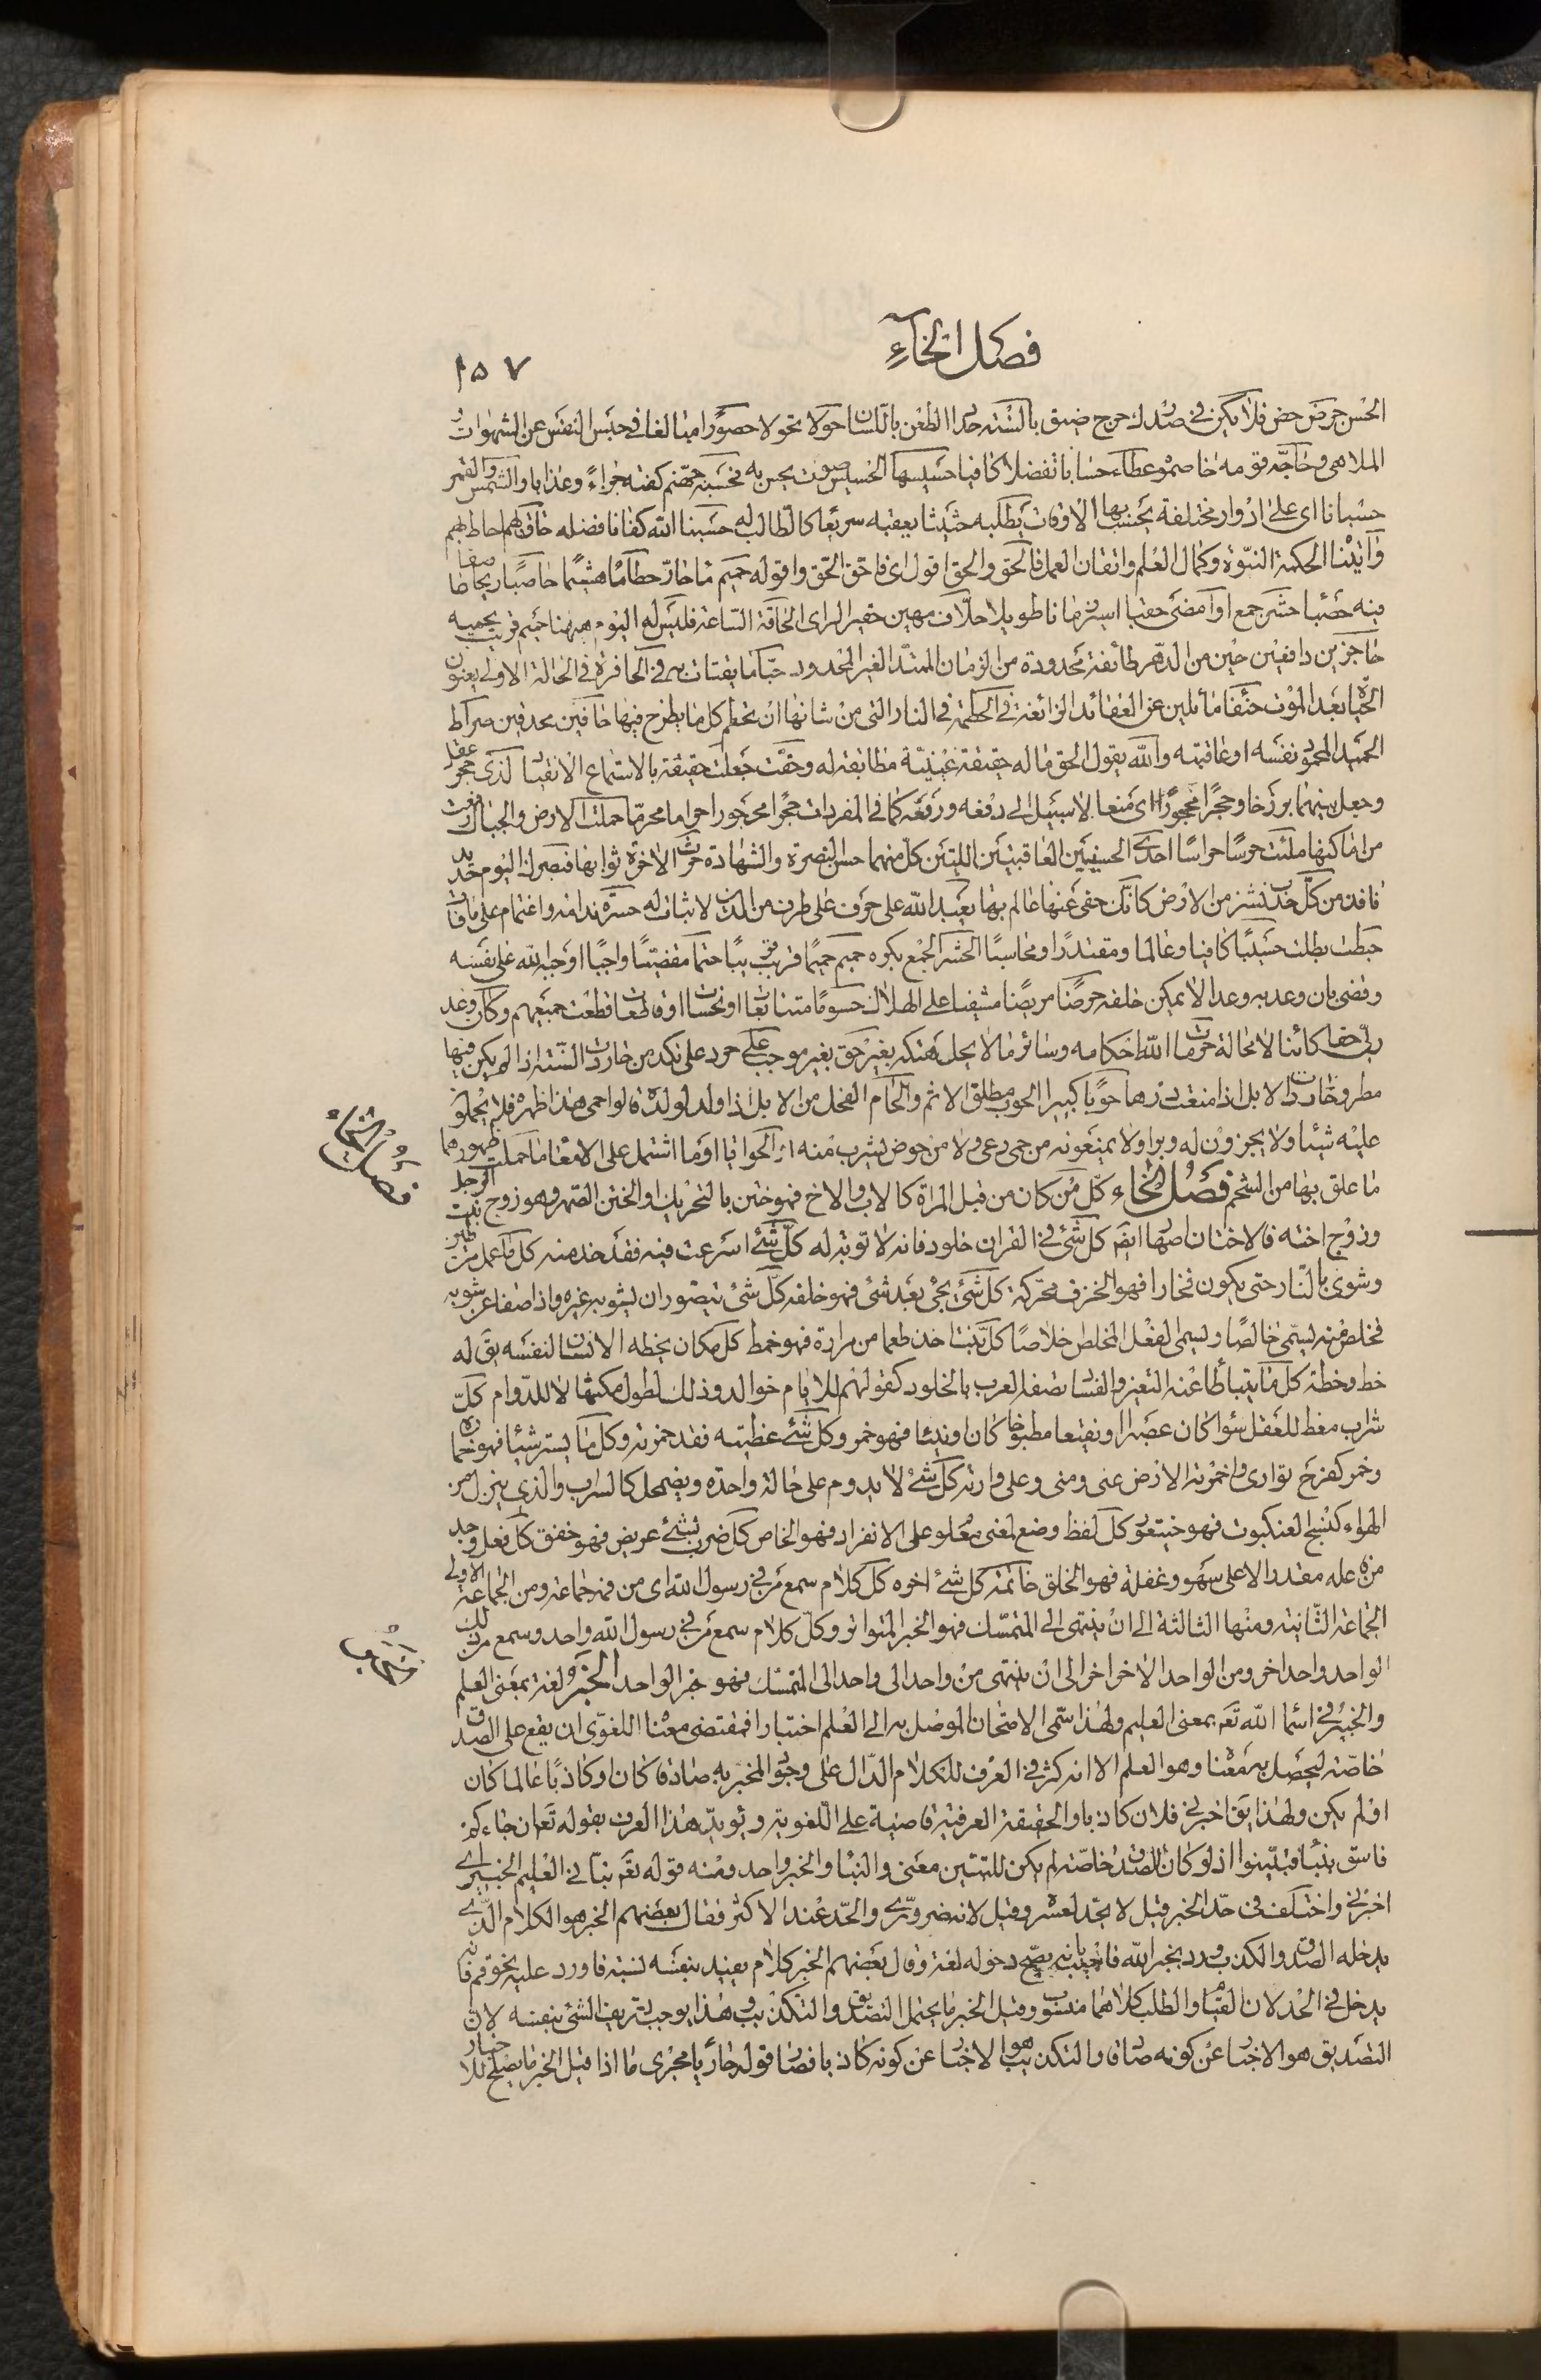 فصل الخاء
١٥٧
الحسن حرض حض فلا يكن في صدرك حرج ضيق بالسنة حداد الطعن باللسان حولا تحولا حصورا مبالغا في حبس النفس عن الشهوات و
الملاهي وحاجه قومه خاصموه عطاء حسابا تفضلا كافيا حسيسها الحسيس صوت يحس به فحسبه جهنم كفته جزاء وعذابا والشمس والقمر
حسبانا اى على ادوار مختلفة يحسب بها الاوقات يطلبه حثيثا يعقبه سريعا كالطالب له حسبنا الله كفانا فضله حاق بهم احاط بهم
وآتيناه الحكمة النبوة وكمال العلم واتقان العمل فالحق والحق اقول اى فاحق الحق واقوله حميم ماء حار حطاما هشيما حاصبا ريحا
فيه حصباء حشر جمع او امضى حقبا اسير زمانا طويلا حلاف مهين حقير الراى الحاقة الساعة فليس له اليوم ههنا حميم قريب يحميه
حاجزين دافعين حين من الدهر طائفة محدودة من الزمان الممتد الغير المحدود حبا ما يقتات به في الحافرة في الحالة الاولى يعنون
الحياة بعد الموت حنفاء مائلين عن العقائد الزائغة في الحطمة في النار التي من شانها ان تحطم كل ما يطرح فيها حافين محدقين صراط
الحميد المحمود نفسه او عاقبته والله يقول الحق ما له حقيقة عينية مطابقة له وحقت جعلت حقيقة بالاستماع والانقياد لذي حجر عقل
وجعل بينهما برزخا وحجرا محجورا اى منعا لا سبيل الى دفعه ورفعه كما في المفردات حجرا محجورا حراما محرما حملت الارض والجبال رفعت
من اماكنها ملئت حرسا حراسا احدى الحسنيين العاقبتين اللتين كل منهما حسن النصرة والشهادة حرث الاخرة ثوابها فبصرك اليوم حديد
نافذ من كل حدب نشز من الارض كانك حفى عنها عالم بها يعبد الله على حرف على طرف من الدين لا ثبات له حسرة ندامة واغتمام على ما فات
حبطت بطلت حسيبا كافيا وعالما ومقتدرا ومحاسبا الحشر الجمع بكره حميم حميما قريب قريبا حتما مقضيا واجبا اوجبه الله على نفسه
وقضى بان وعد به وعدا لا يمكن خلفه حرضا مريضا مشفيا على الهلاك حسوما متتابعات او نحسات او قاطعات قطعت جميعهم وكان وعد
ربى حقا كائنا لا محالة حرمات الله احكامه وسائر ما لا يحل هتكه بغير حق بغير موجب على حرد على نكد من حاردت السنة اذا لم يكن فيها
مطر وحاردت الابل اذا منعت درها حوبا كبيرا الحوب مطلق الاثم والحام الفحل من الابل اذا ولد لولده قالوا حمى هذا ظهره فلا يحملون
عليه شيئا ولا يجزون له وبرا ولا يمنعونه من حمى رعى ولا من حوض يشرب منه او الحوايا او ما اشتمل على الامعاء ما حملت ظهورهما
ما علق بها من الشحم فصل الخاء كل من كان من قبل المراة كالاب والاخ فهو ختن بالتحريك او الختن الصهر وهو زوج بنت الرجل
وزوج اخته فالاختان اصهار ايضا كل شئ في القران خلود فانه لا توبة له كل شئ اسرعت فيه فقد خذمته كل ما عمل من طين
وشوى بالنار حتى يكون فخارا فهو الخزف محركة كل شئ يجئ بعد شئ فهو خلفه كل شئ يتصور ان يشوبه غيره واذا صفا عن شوبه
فخلص منه يسمى خالصا ويسمى الفعل المخلص خلاصا كل نبت اخذ طعما من مرارة فهو خمط كل مكان يخطه الانسان لنفسه يقال له
خط وخطة كل ما يتباطا عنه التغير والفساد تصفه العرب بالخلود كقولهم للايام خوالد وذلك لطول مكثها لا للدوام كل
شراب مغط للعقل سواء كان عصيرا او نقيعا مطبوخا كان او نيئا فهو خمر وكل شئ غطيته فقد خمرته وكل ما يستر شيئا فهو خماره
وخمر كفرح توارى واخمرته الارض عنى ومنى وعلى وارته كل شئ لا يدوم على حالة واحدة ويضمحل كالسراب والذي ينزل من
الهواء كنسج العنكبوت فهو خيتعور كل لفظ وضع لمعنى معلوم على الانفراد فهو الخاص كل ضرب بشئ عريض فهو خفق كل فعل وجد
من فاعله مقدرا لا على سهو وغفلة فهو الخلق خاتمة كل شئ اخره كل كلام سمع من في رسول الله اى من فمه جماعة ومن الجماعة الاولى
الجماعة الثانية ومنها الثالثة الى ان ينتهى الى المتمسك فهو الخبر المتواتر وكل كلام سمع من في رسول الله واحد وسمع من ذلك
الواحد واحد اخر ومن الواحد الاخر اخر الى ان ينتهى من واحد الى واحد الى المتمسك فهو خبر الواحد الخبر لغة بمعنى العلم
والخبير في اسماء الله تعالى بمعنى العليم ولهذا سمى الامتحان الموصل به الى العلم اختبارا فمقتضى معناه اللغوى ان يقع على الصدق
خاصة ليحصل به معناه وهو العلم الا انه كثر في العرف للكلام الدال على وجود المخبر به صادقا كان او كاذبا عالما كان
او لم يكن ولهذا يقال اخبرني فلان كاذبا والحقيقة العرفية قاضية على اللغوية ويؤيد هذا العرف بقوله تعالى ان جاءكم
فاسق بنبا فتبينوا اذ لو كان للصدق خاصة لم يكن للتبين معنى والنبا والخبر واحد ومنه قوله تعالى نبانى العليم الخبير اى
اخبرنى واختلف فى حد الخبر قيل لا يحد لعسره وقيل لانه ضرورى والحد عند الاكثر فقال بعضهم الخبر هو الكلام الذى
يدخله الصدق والكذب ورد بخبر الله فاجيب بانه يصح دخوله لغة وقال بعضهم الخبر كلام يفيد بنفسه نسبة فاورد عليه نحو قم فانه
يدخل في الحد لان القيام والطلب كلاهما منسوب وقيل الخبر ما يحتمل التصديق والتكذيب وهذا يوجب تعريف الشئ بنفسه لان
التصديق هو الاخبار عن كونه صادقا والتكذيب هو الاخبار عن كونه كاذبا فصار قوله جاريا مجرى ما اذا قيل الخبر ما يصلح للاخبار
فصل الخاء